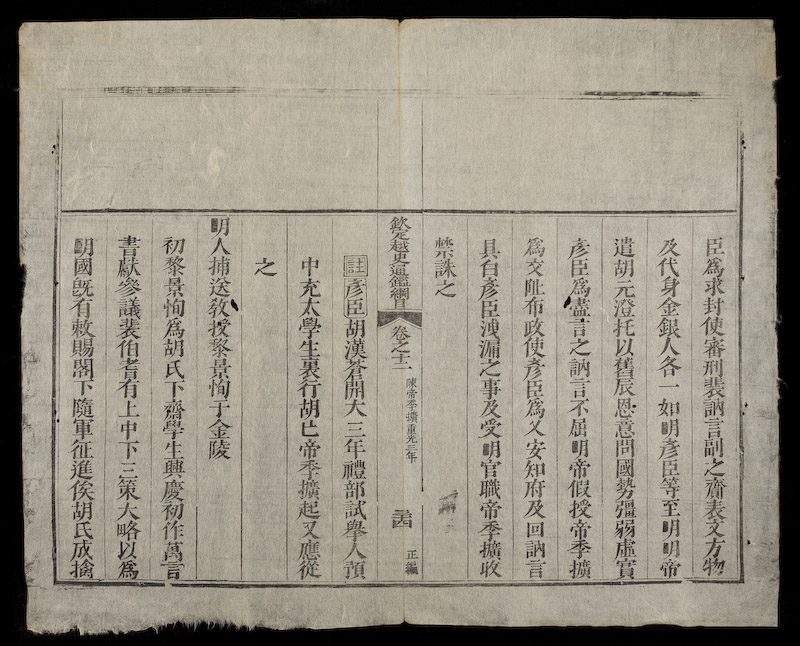 臣爲求封使審刑裴訥言副之齎表文方物
及代身金銀人各一如明彥臣等至明明帝
遣胡元澄托以舊辰恩意問國勢彊弱虛實
彥臣爲盡言之訥言不屈明帝假授帝季擴
爲交阯布政使彥臣爲乂安知府及囘訥言
具白彥臣洩漏之事及受明官職帝季擴收
禁誅之
欽定越史通鑑綱目 卷之十二 陳帝季擴重光三年 三四 正編
註 彥臣胡漢蒼開大三年禮部試舉人預
中充太學生裏行胡亡帝季擴起又應從
之
明人捕送敎授黎景恂于金陵
初黎景恂爲胡氏下齋學生興慶初作萬言
書獻參議裴伯耆有上中下三策大略以爲
明國旣有敕賜閣下隨軍征進俟胡氏成擒